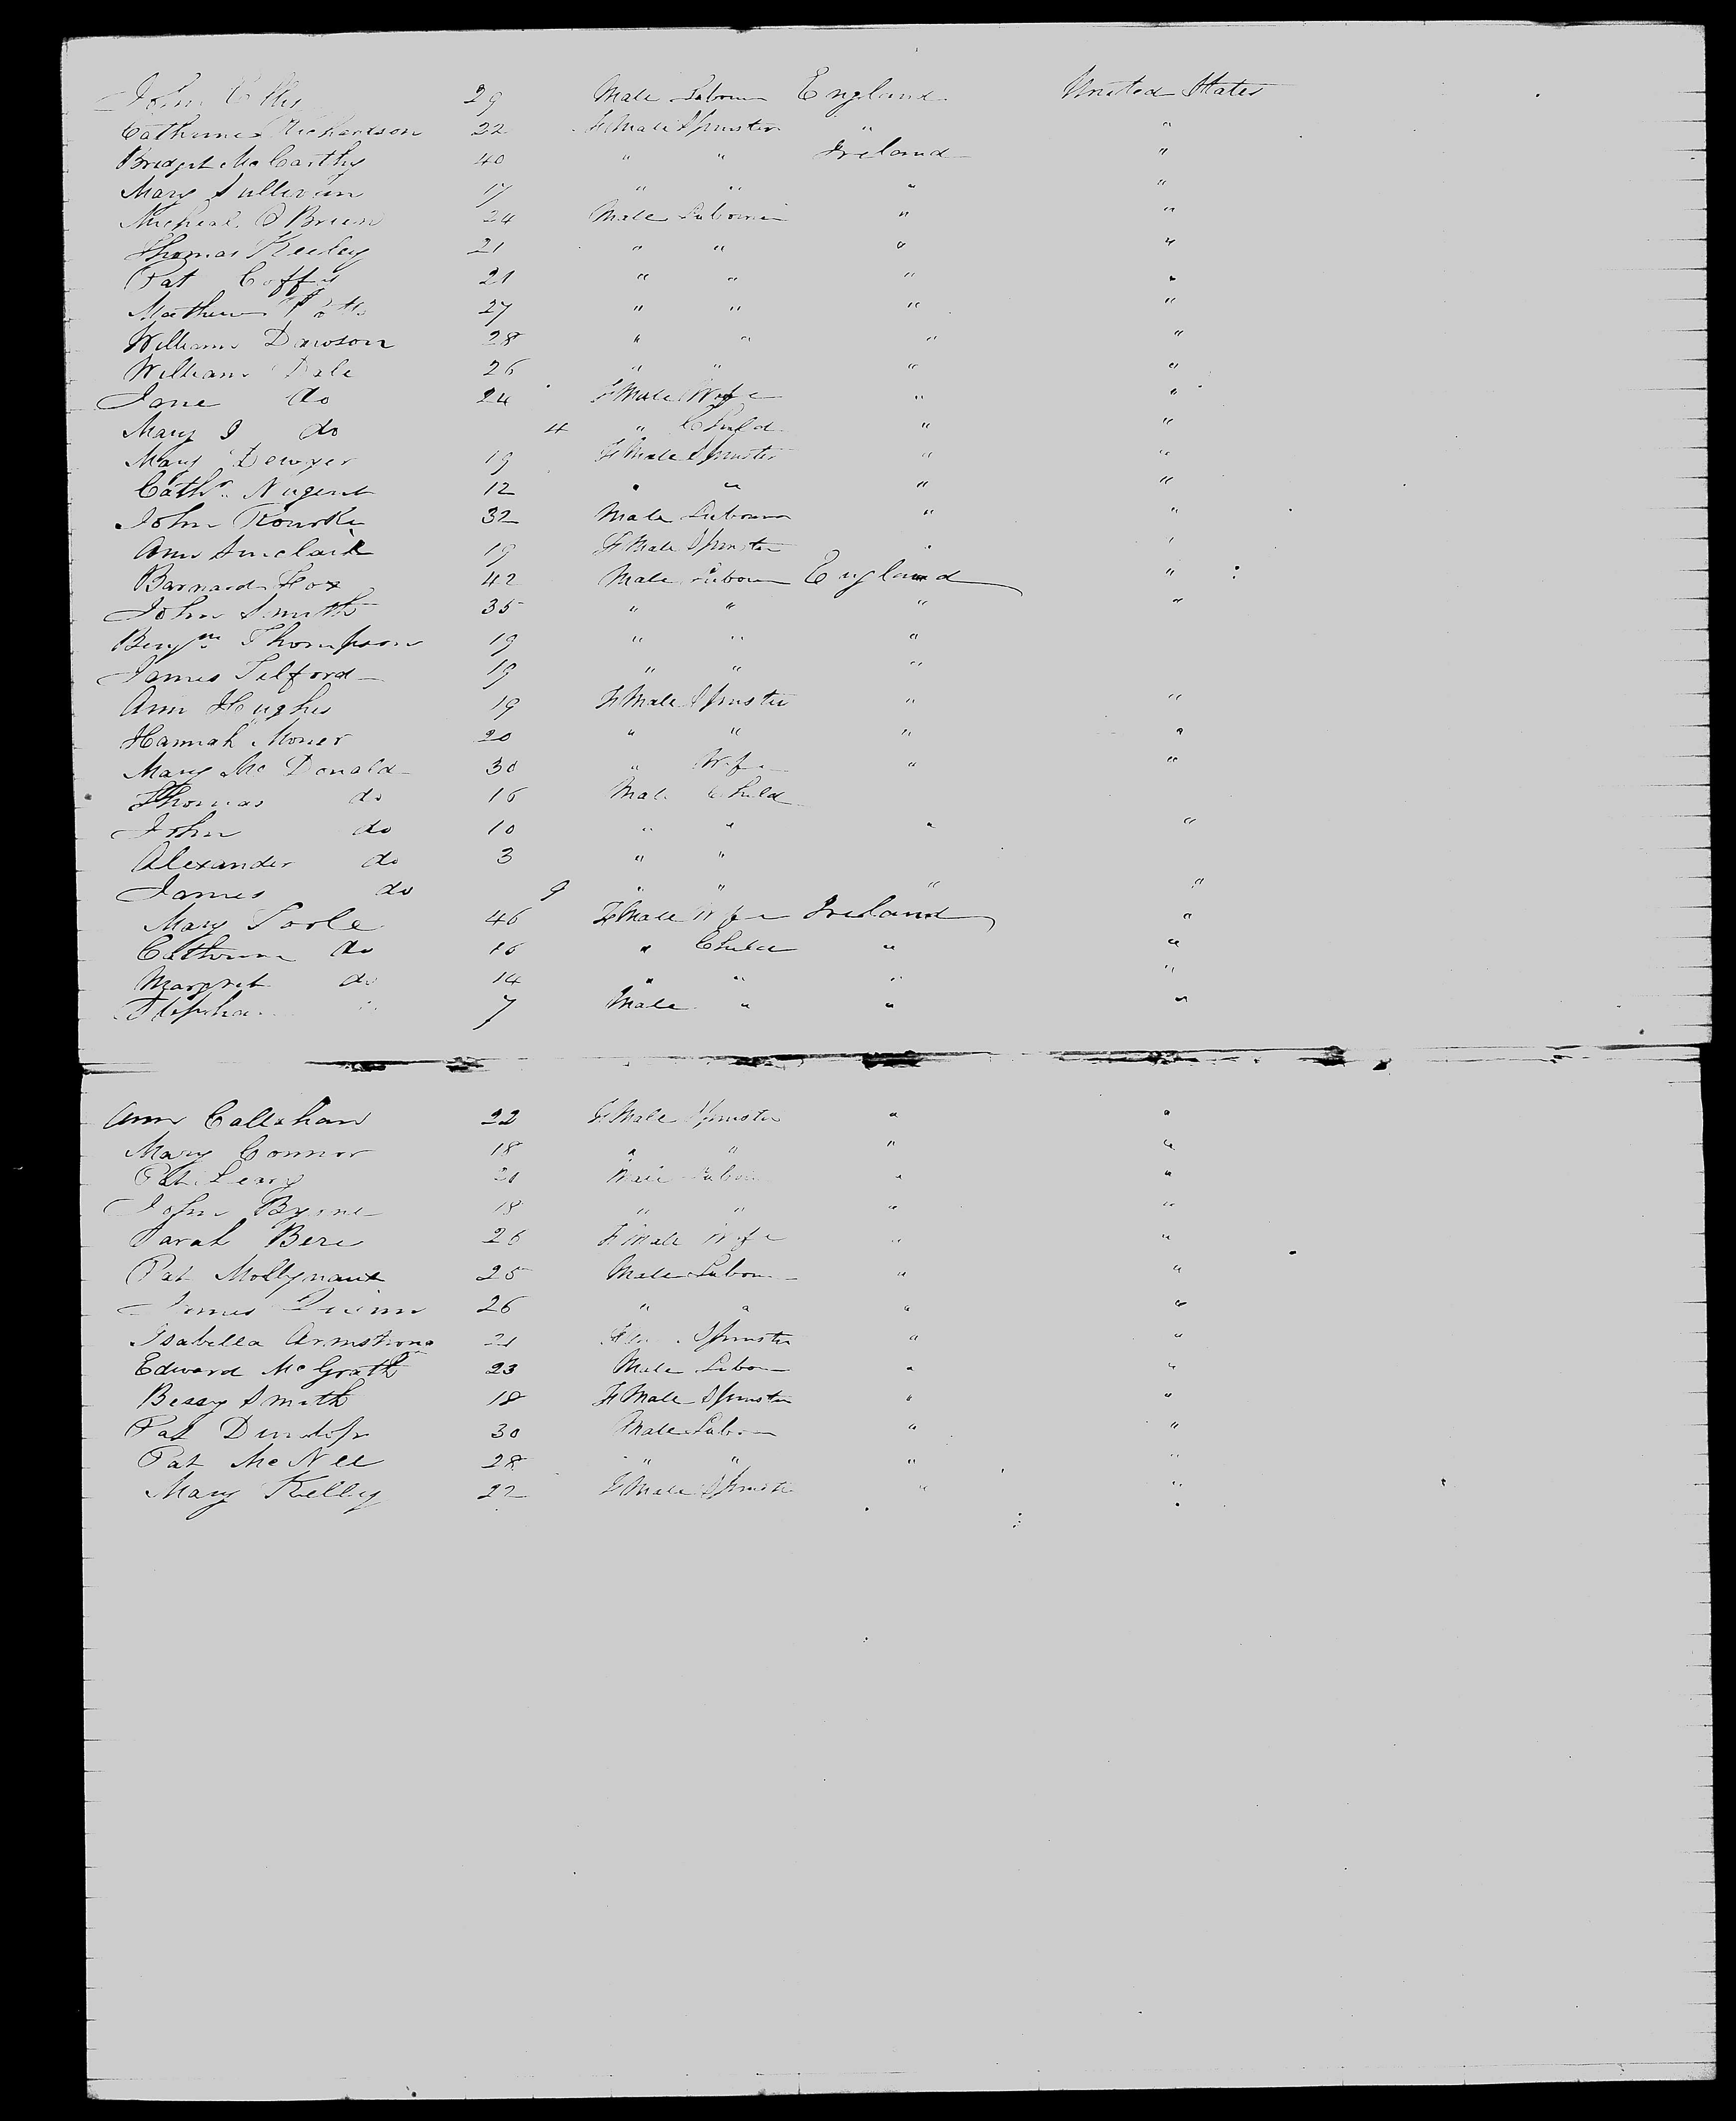 John Ellis 29 Male Labourer England United States
Catherine Richardson 22 F Male Spinster " "
Bridget McCarthy 40 " " Ireland "
Mary Sullivan 17 " " " "
Micheal O Brien 24 Male Labourer " "
Thomas Keeley 21 " " " "
Pat Coffey 21 " " " "
Mathew 27 " " " "
William Dawson 28 " " " "
William Dale 26 " " " "
Jane do 24 F Male Wife " "
Mary J do 4 " Child " "
Mary Dewyer 19 F Male Spinster " "
Cathr. Nugent 12 " " " "
John Rourke 32 Male Labourer " "
Ann Sinclair 19 F Male Spinster " "
Barnard Fox 42 Male Labour England "
John Smith 35 " " " "
Benjm. Thompson 19 " " "
James Telford 19 " " "
Ann Hughes 19 F Male Spinster " "
Hannah Moner 20 " " " "
Mary Mc Donald 30 " Wife " "
Thomas do 16 Male Child
John do 10 " " " "
Alexander do 3 " "
James do 9 " " " "
Mary Toole 46 F Male Wife Ireland "
Catherine do 16 " Child " "
Margret do 14 " " " "
Stephen " 7 Male " " "
Ann Callahan 22 F Male Spinster " "
Mary Connor 18 " " " "
Pat Leary 21 Male Labour " "
John Byrne 18 " " " "
Sarah Bere 26 F Male Wife " "
Pat Mollynaux 25 Male Labour " "
James Quinn 26 " " " "
Isabella Armstrong 21 F Spinster " "
Edward McGrath 23 Male Labour " "
Bessy Smith 18 F Male Spinster " "
Pat Dunlop 30 Male Labour " "
Pat McNee 28 " " " "
Mary Kelly 22 F Male Spinster " "